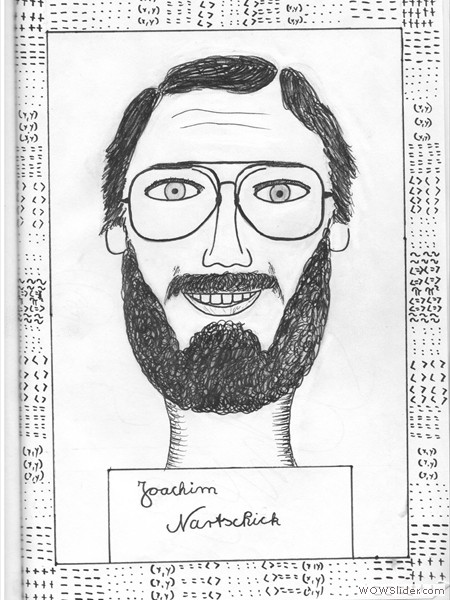 Joachim
Nartschick
WOWSlider.com